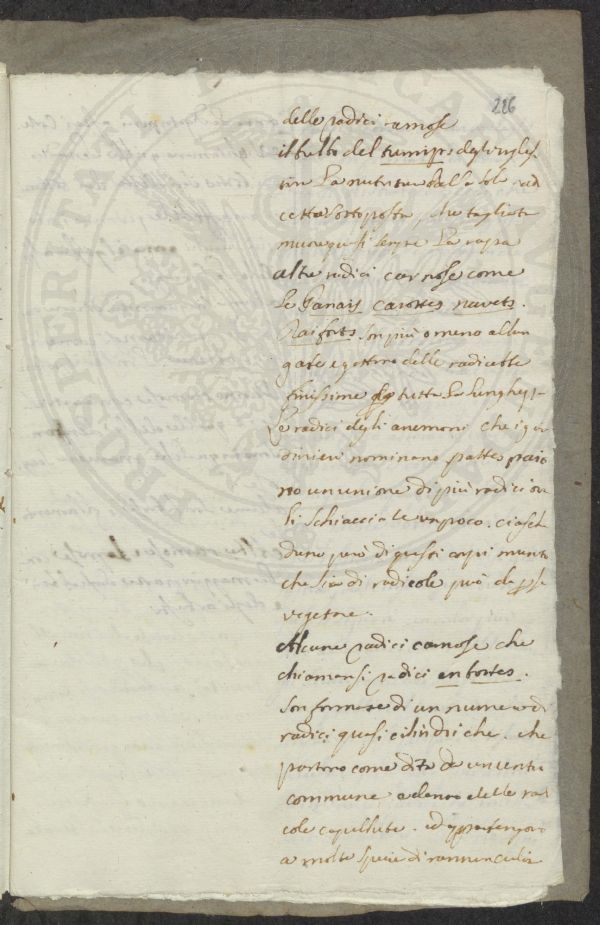 226
delle radici carnose
il bulbo del turnips degl'inglesi
La nutritura dalla sola radi
cetta sottoposta, che tagliata
muore quasi sempre La rapa
altre radici carnose come
le Panais carottes navets.
Raiforts son più o meno allun
gate e gettano delle radicette
finissime per tutta la lunghezza
Le radici degli anemoni che i giar
dinieri nominano pattes paio
no un unione di più radici ova
li schiacciate un poco. ciasche
duno però di questi corpi munito
che sia di radicole può da per se
vegetare.
Alcune radici carnose che
chiamansi radici en bottes.
son formate di un numero di
radici quasi cilindriche. che
partono come dita da un centro
commune e danno delle radi
cole capillute. ed appartengono
a molte specie di rannunculi